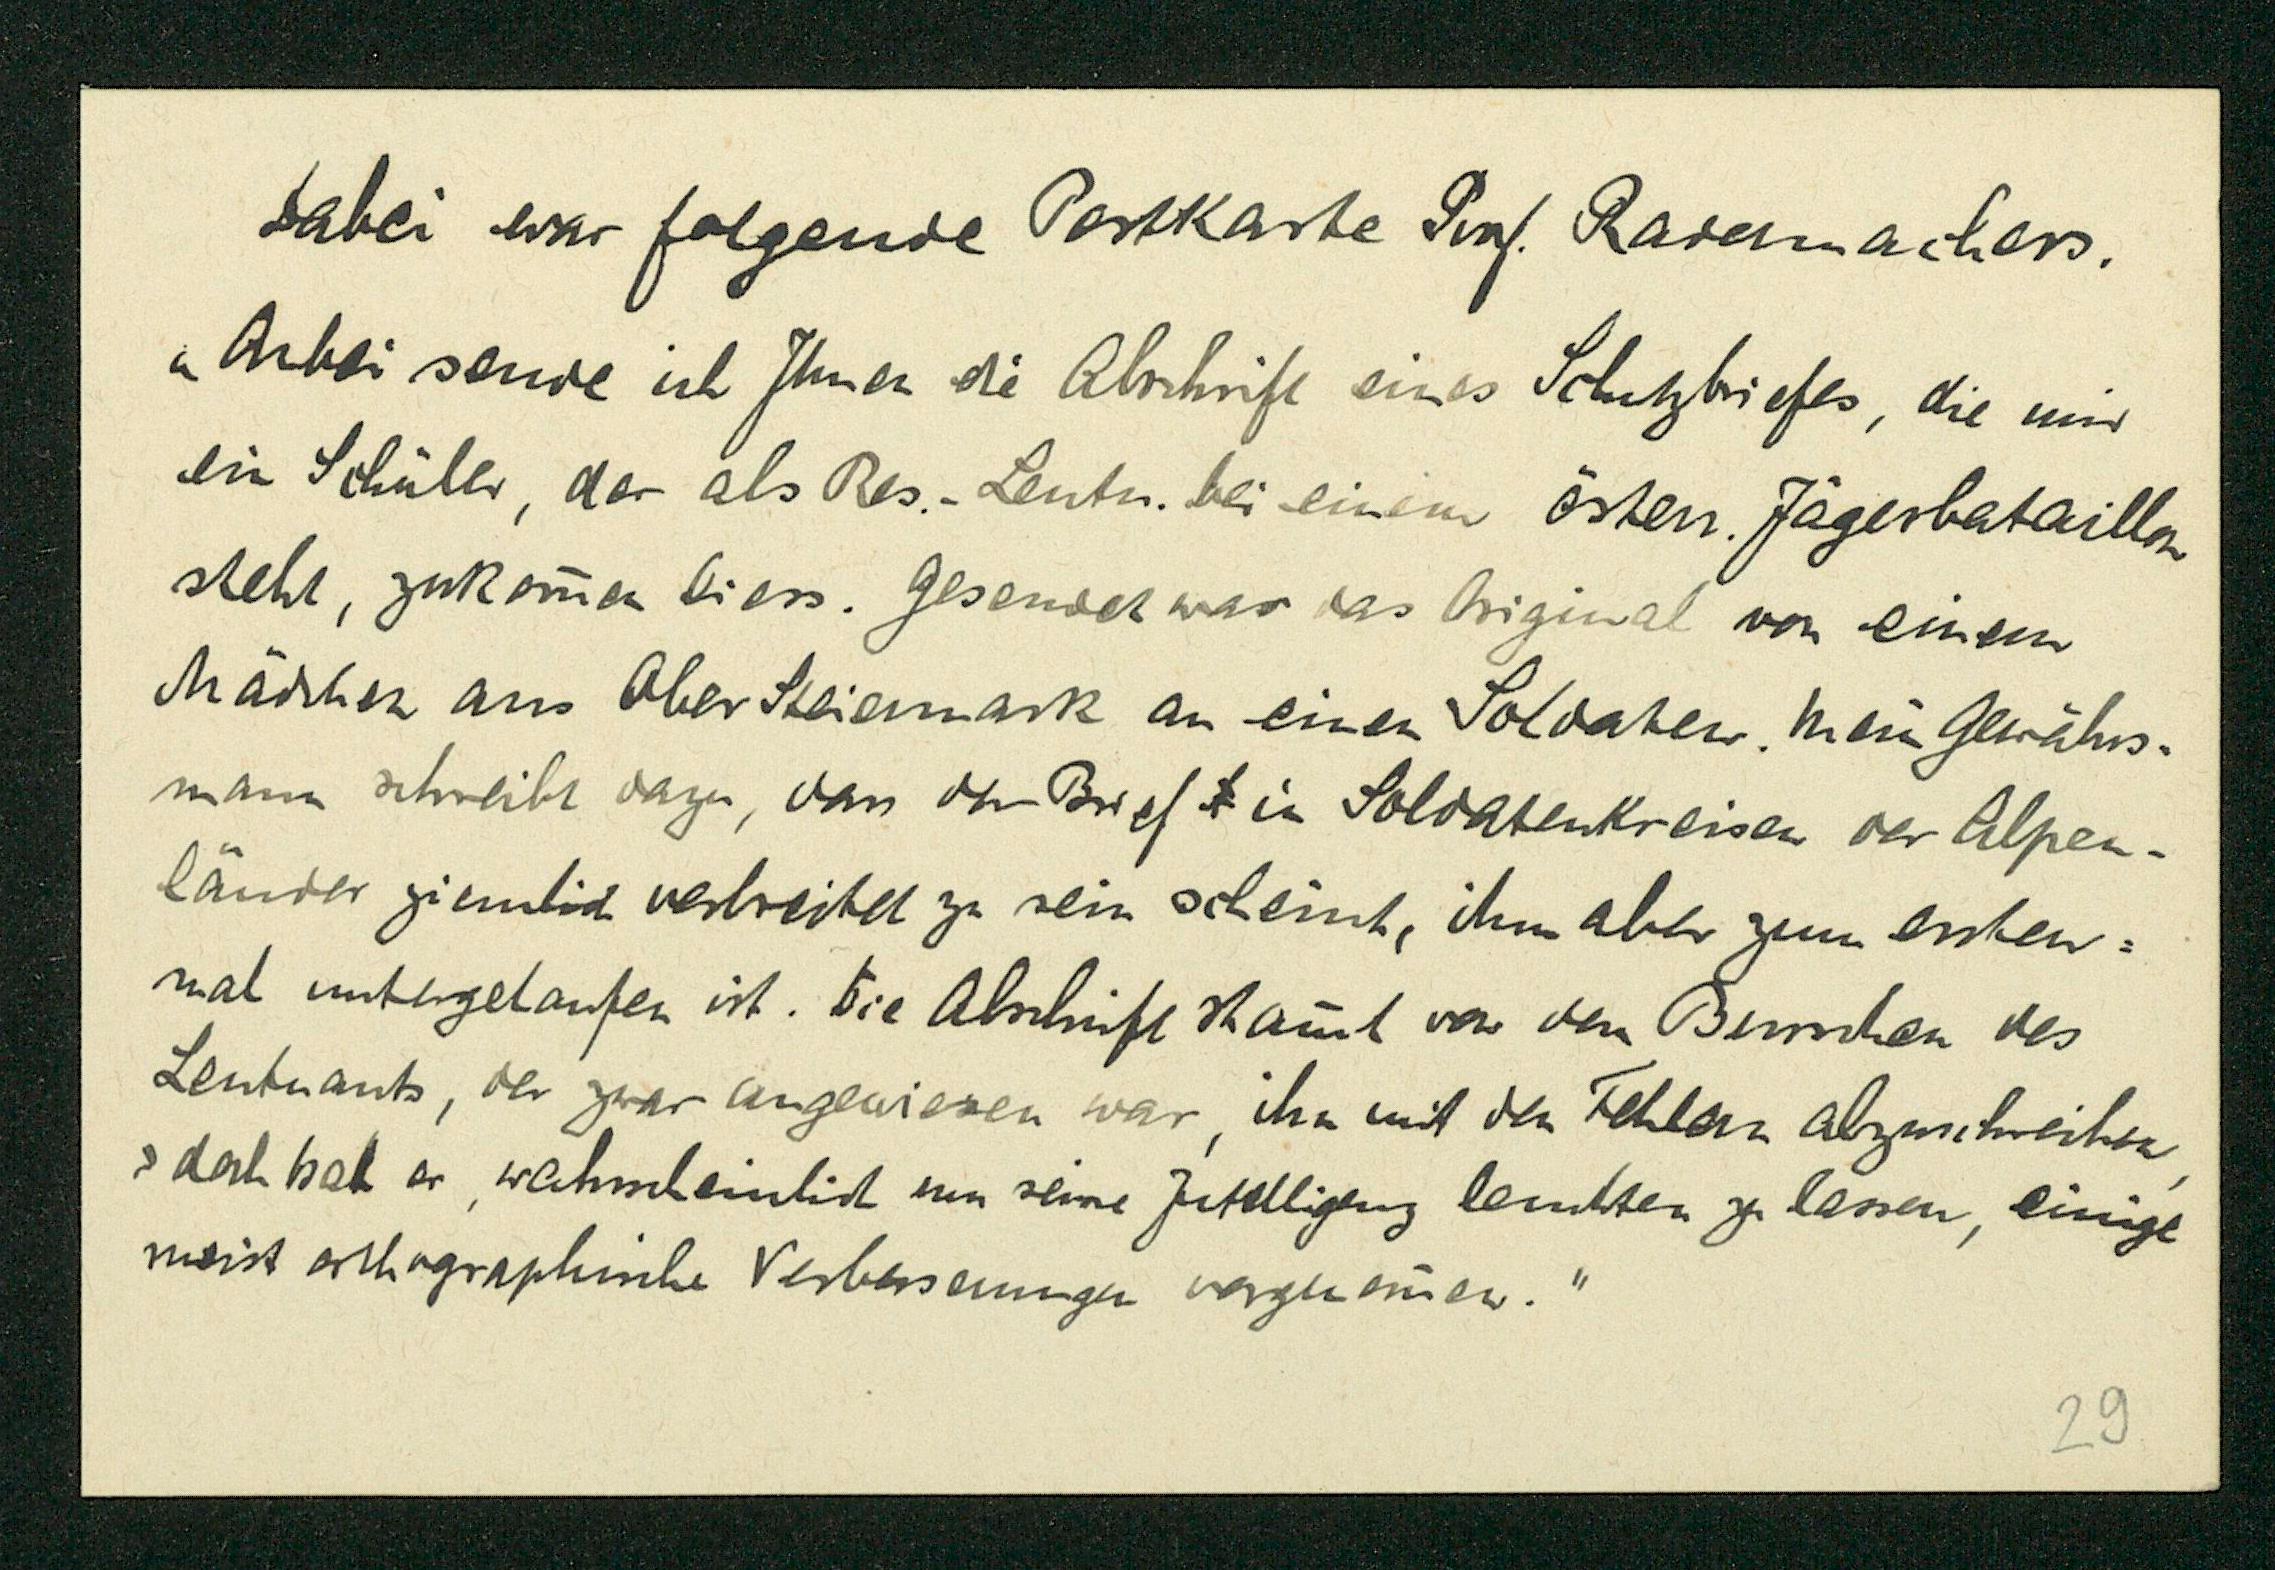 Dabei war folgende Postkarte Prof. Radermachers.
„Anbei sende ich Ihnen die Abschrift eines Schutzbriefes, die mir
ein Schüler, der als Res.-Leutn. bei einem österr. Jägerbataillon
steht, zukom̄en liess. Gesendet war das Original von einem
Mädchen aus Ober Steiermark an einen Soldaten. Mein Gewährs-
mann schreibt dazu, dass der Brief in Soldatenkreisen der Alpen-
länder ziemlich verbreitet zu sein scheint, ihm aber zum ersten=
mal untergelaufen ist. Die Abschrift stam̄t von dem Burschen des
Leutnants, der zwar angewiesen war, ihn mit den Fehlern abzuschreiben,
doch hat er, wahrscheinlich um seine Intelligenz leuchten zu lassen, einige
meist orthographische Verbesserungen vorgenom̄en."
29